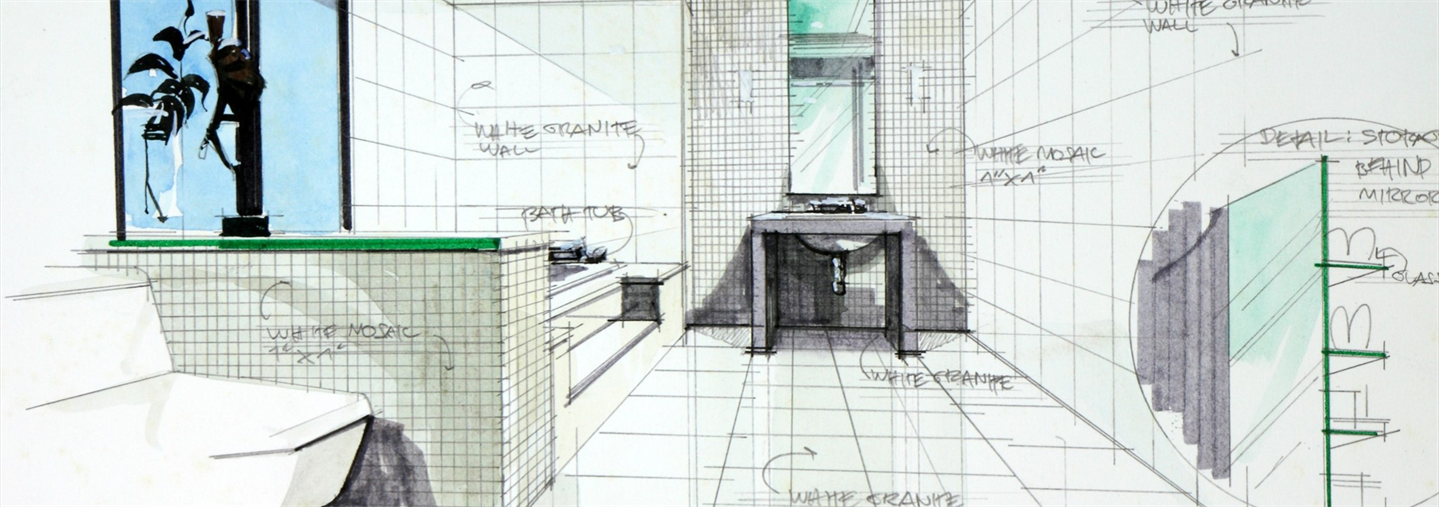 WHITE GRANITE
WALL
WHITE GRANITE
WALL
BATH TUB
WHITE MOSAIC
1"X1"
DETAIL: STORAG
BEHIND
MIRROR
GLAS
WHITE MOSAIC
1"X1"
WHITE GRANITE
WHITE GRANITE